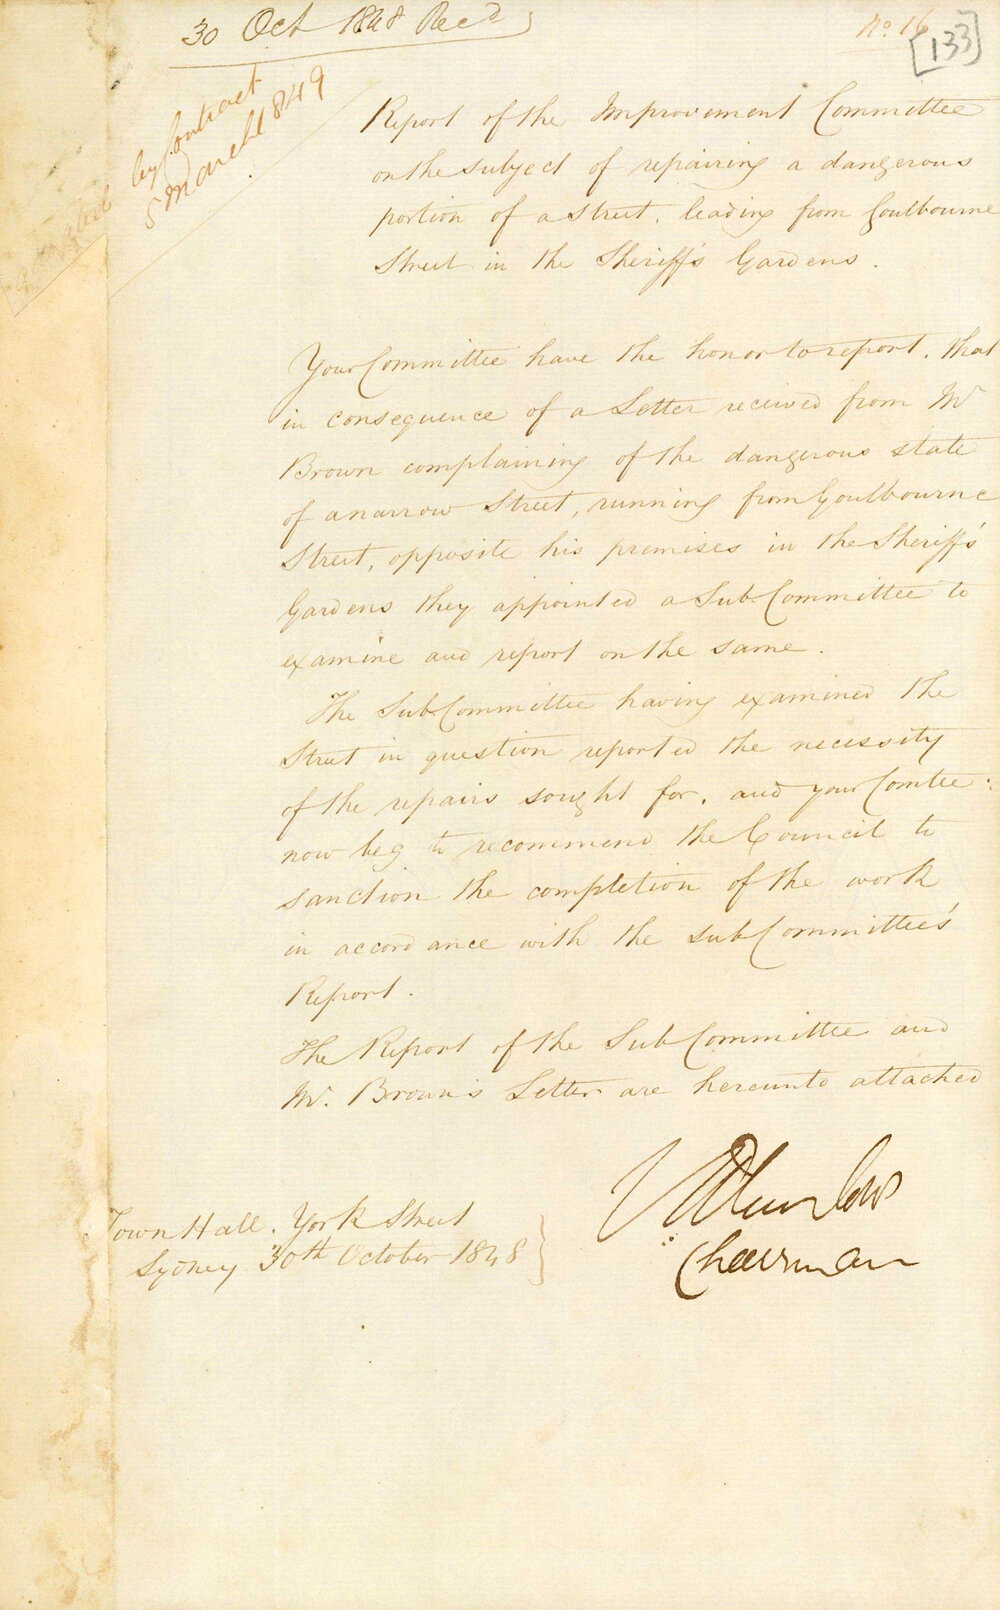 30 Oct 1848 Recd
No. 16
[133]
by Contract
5 March 1849
Report of the Improvement Committee
on the subject of repairing a dangerous
portion of a Street, leading from Goulbourne
Street in the Sheriff's Gardens.
Your Committee have the honor to report, that
in consequence of a Letter received from Mr
Brown complaining of the dangerous state
of a narrow Street, running from Goulbourne
Street, opposite his premises in the Sheriff's
Gardens they appointed a Sub-Committee to
examine and report on the same.
The Sub Committee having examined the
Street in question reported the necessity
of the repairs sought for, and your Comtee:
now beg to recommend the Council to
sanction the completion of the work
in accordance with the Sub Committee's
Report.
The Report of the Sub Committee and
Mr. Brown's Letter are hereunto attached
Chairman
Town Hall. York Street
Sydney 30th October 1848